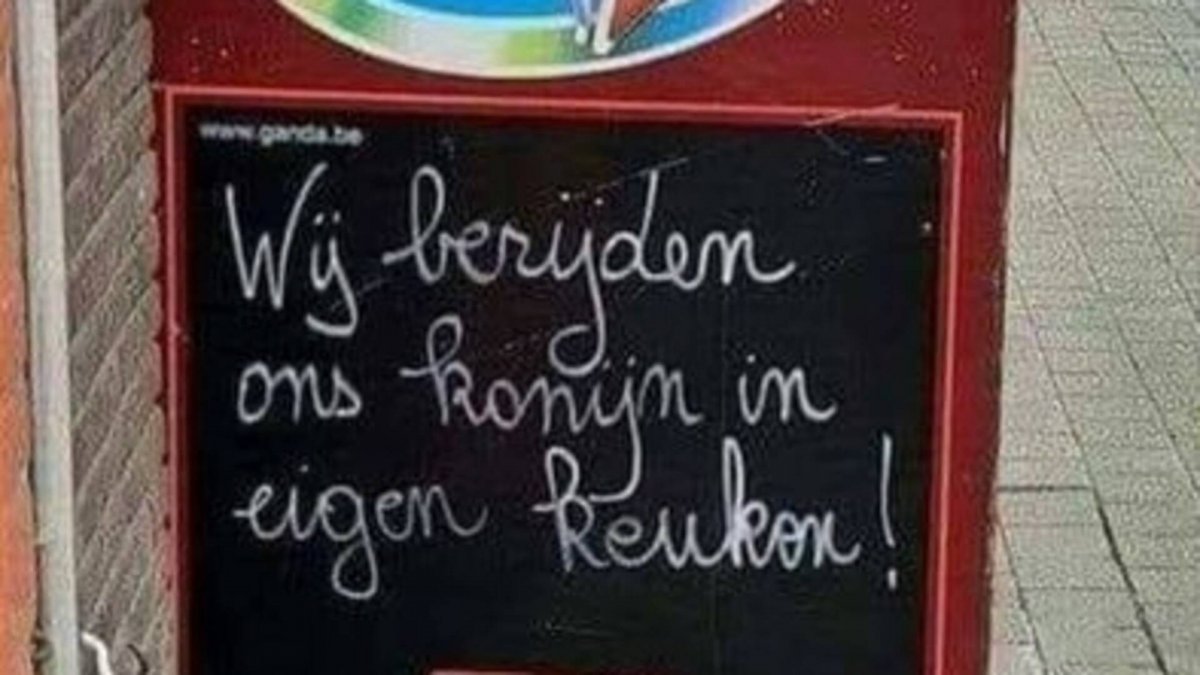 www.ganda.be
Wij berijden
ons konijn in
eigen keukon!